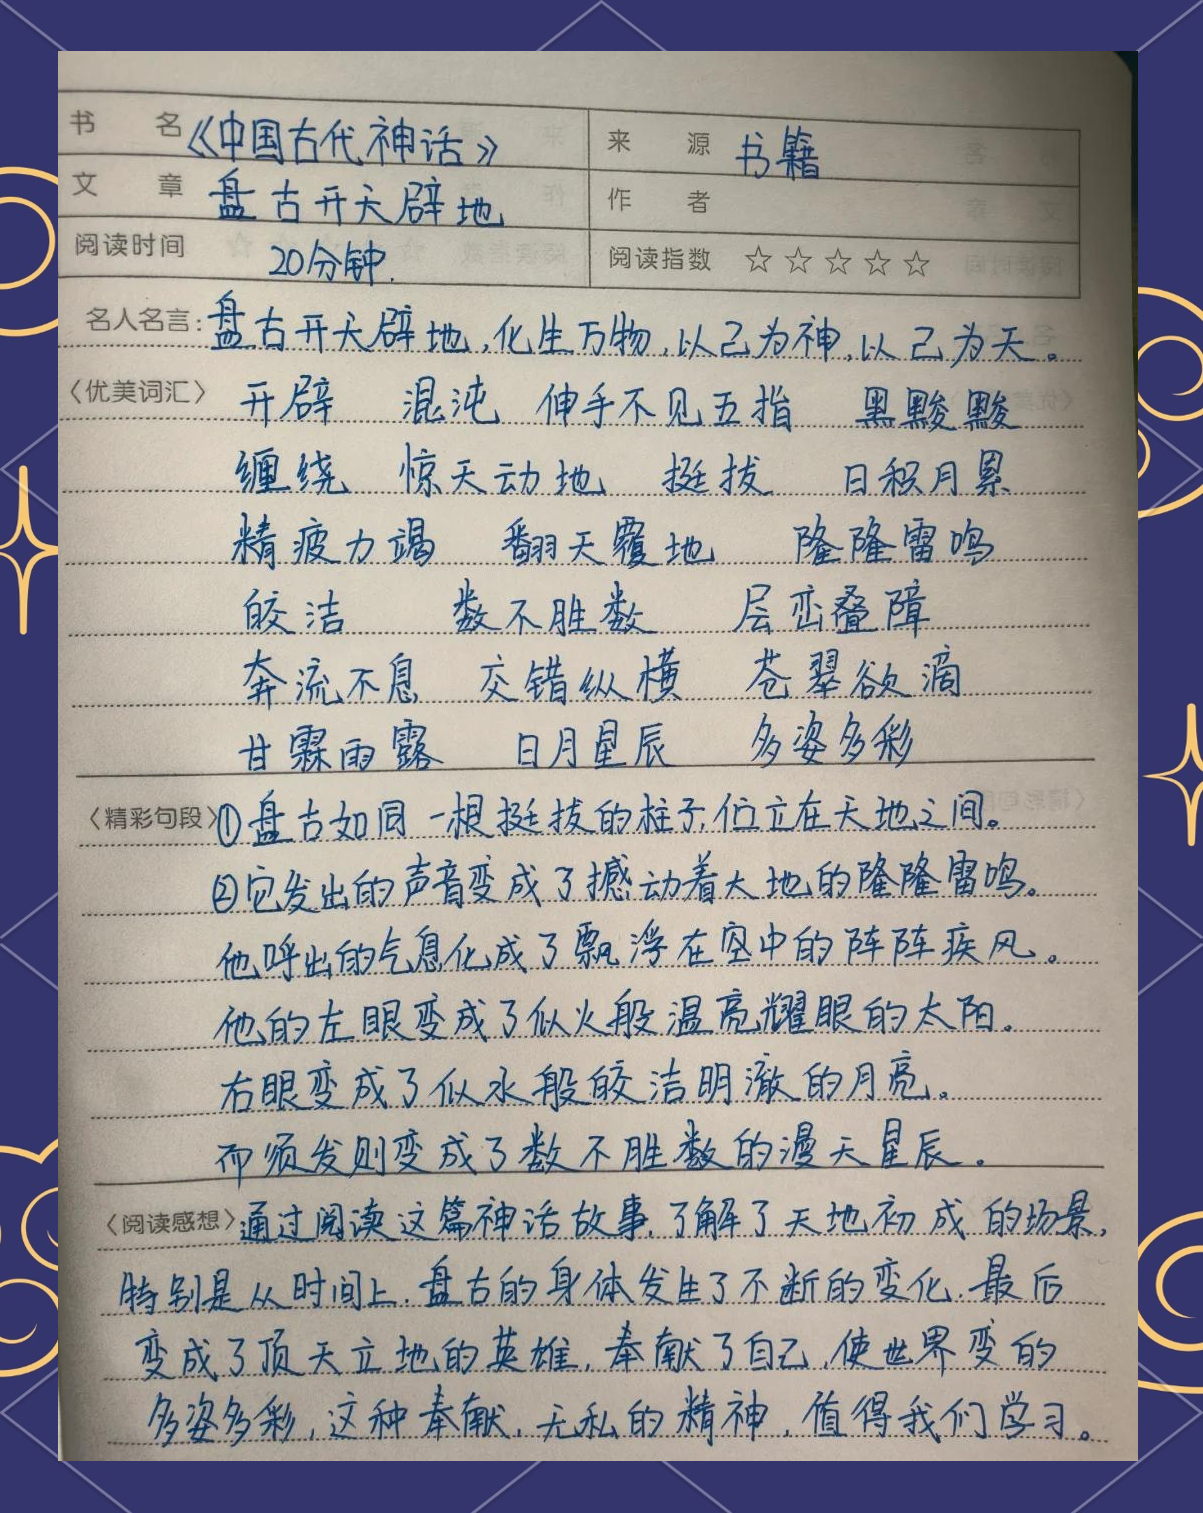 书 名 《中国古代神话》 来 源 书籍
文 章 盘古开天辟地 作 者
阅读时间 20分钟. 阅读指数 ☆☆☆☆☆
名人名言:盘古开天辟地,化生万物,以己为神,以己为天。
〈优美词汇〉 开辟 混沌 伸手不见五指 黑黢黢
缠绕 惊天动地 挺拔 日积月累
精疲力竭 翻天覆地 隆隆雷鸣
皎洁 数不胜数 层峦叠障
奔流不息 交错纵横 苍翠欲滴
甘霖雨露 日月星辰 多姿多彩
〈精彩句段〉①盘古如同一根挺拔的柱子,伫立在天地之间。
②它发出的声音变成了撼动着大地的隆隆雷鸣。
他呼出的气息化成了飘浮在空中的阵阵疾风。
他的左眼变成了似火般温亮耀眼的太阳。
右眼变成了似水般皎洁明澈的月亮。
而须发则变成了数不胜数的漫天星辰。
〈阅读感想〉通过阅读这篇神话故事,了解了天地初成的场景,
特别是从时间上,盘古的身体发生了不断的变化,最后
变成了顶天立地的英雄,奉献了自己,使世界变的
多姿多彩,这种奉献,无私的精神,值得我们学习。